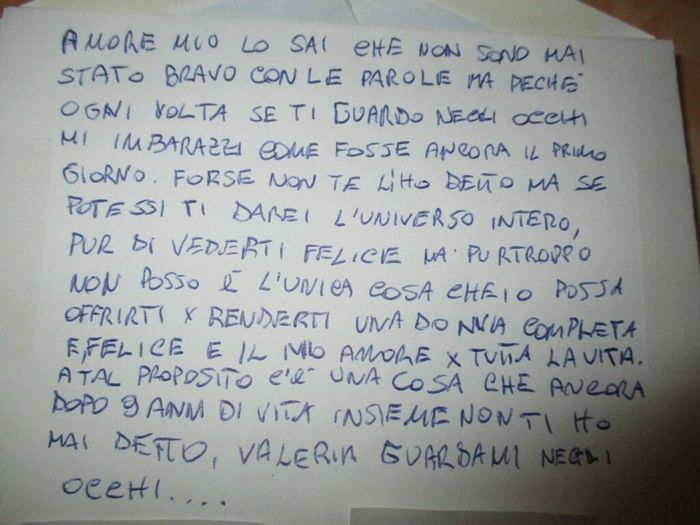 AMORE MIO LO SAI CHE NON SONO MAI
STATO BRAVO CON LE PAROLE MA PECHÈ
OGNI VOLTA SE TI GUARDO NEGLI OCCHI
MI IMBARAZZI COME FOSSE ANCORA IL PRIMO
GIORNO. FORSE NON TE L'HO DETTO MA SE
POTESSI TI DAREI L'UNIVERSO INTERO,
PUR DI VEDERTI FELICE MA PURTROPPO
NON POSSO È L'UNICA COSA CHE IO POSSA
OFFRIRTI X RENDERTI UNA DONNA COMPLETA
E, FELICE E IL MIO AMORE X TUTTA LA VITA.
A TAL PROPOSITO C'È UNA COSA CHE ANCORA
DOPO 9 ANNI DI VITA INSIEME NON TI HO
MAI DETTO, VALERIA GUARDAMI NEGLI
OCCHI....